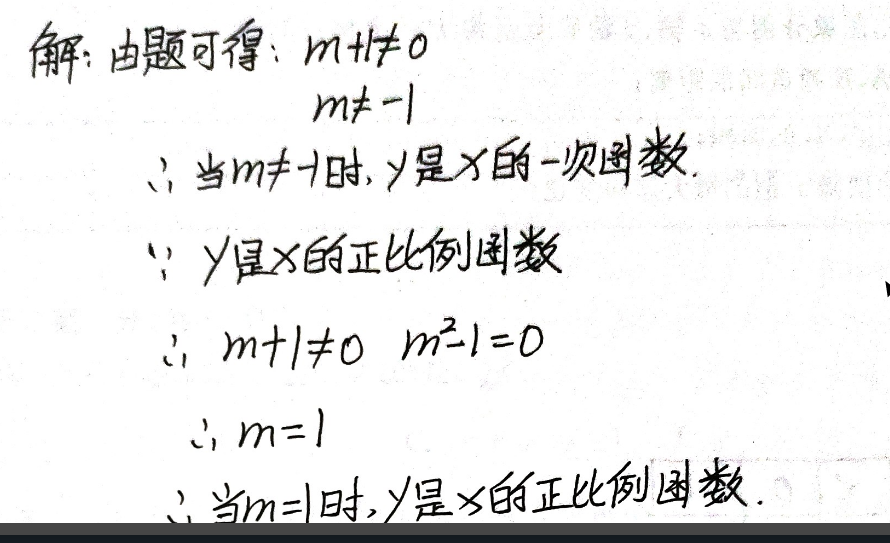 解：由题可得：m+1≠0
m≠-1
∴ 当m≠-1时，y是x的一次函数.
∵ y是x的正比例函数
∴ m+1≠0 m²-1=0
∴ m=1
∴ 当m=1时，y是x的正比例函数.